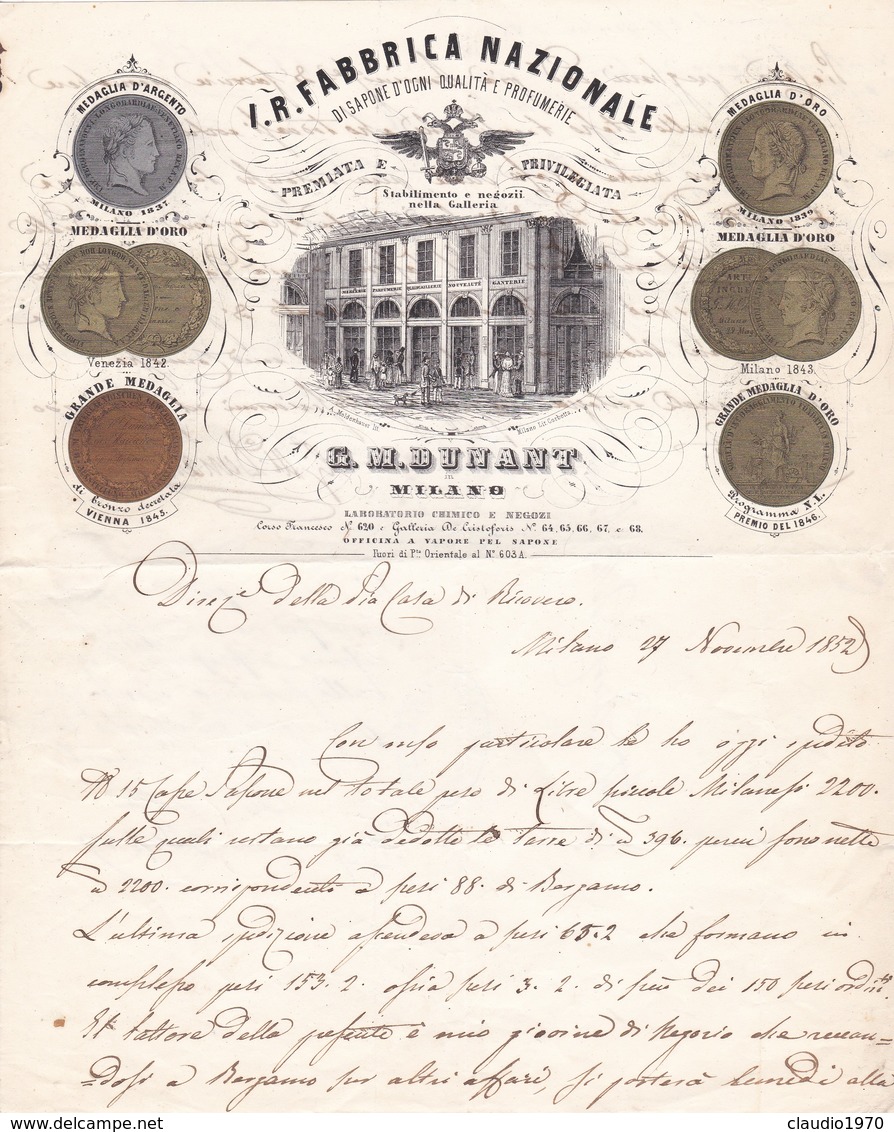 I.R. FABBRICA NAZIONALE
DI SAPONE D'OGNI QUALITÀ E PROFUMERIE
PREMIATA E PRIVILEGIATA
Stabilimento e negozii
nella Galleria
MEDAGLIA D'ARGENTO
MILANO 1837
MEDAGLIA D'ORO
Venezia 1842.
GRANDE MEDAGLIA
di bronzo decretata
VIENNA 1845.
MEDAGLIA D'ORO
MILANO 1839
MEDAGLIA D'ORO
Milano 1843.
GRANDE MEDAGLIA D'ORO
Programma N. I.
PREMIO DEL 1846.
MERCERIE PARFUMERIE QUINCAILLERIE NOUVEAUTÉ GANTERIE
Milano Lit. Corbetta
G. M. DUNANT
in
MILANO
LABORATORIO CHIMICO E NEGOZI
Corso Francesco Nº 620 e Galleria De Cristoforis Nº 64, 65, 66, 67, e 68.
OFFICINA A VAPORE PEL SAPONE
Fuori di Pta Orientale al Nº 603 A.
Direze della Pia Casa di Ricovero.
Milano 27 Novembre 1852
Con mio particolare le ho oggi spedito
15 Casse Sapone nel totale peso di Libre piccole Milanesi 2200.
sulle quali restano già dedotte le tarre di 396. perciò sono nette
2200. corrispondente a pesi 88. di Bergamo.
L'ultima spedizione ascendeva a pesi 65.2 che formano in
complesso pesi 153. 2. ossia pesi 3. 2. di più dei 150 pesi ordinti
Il lattore della presente è mio giovine di Negozio che recan-
dosi a Bergamo per altri affari, si porterà lunedì alla
claudio1970